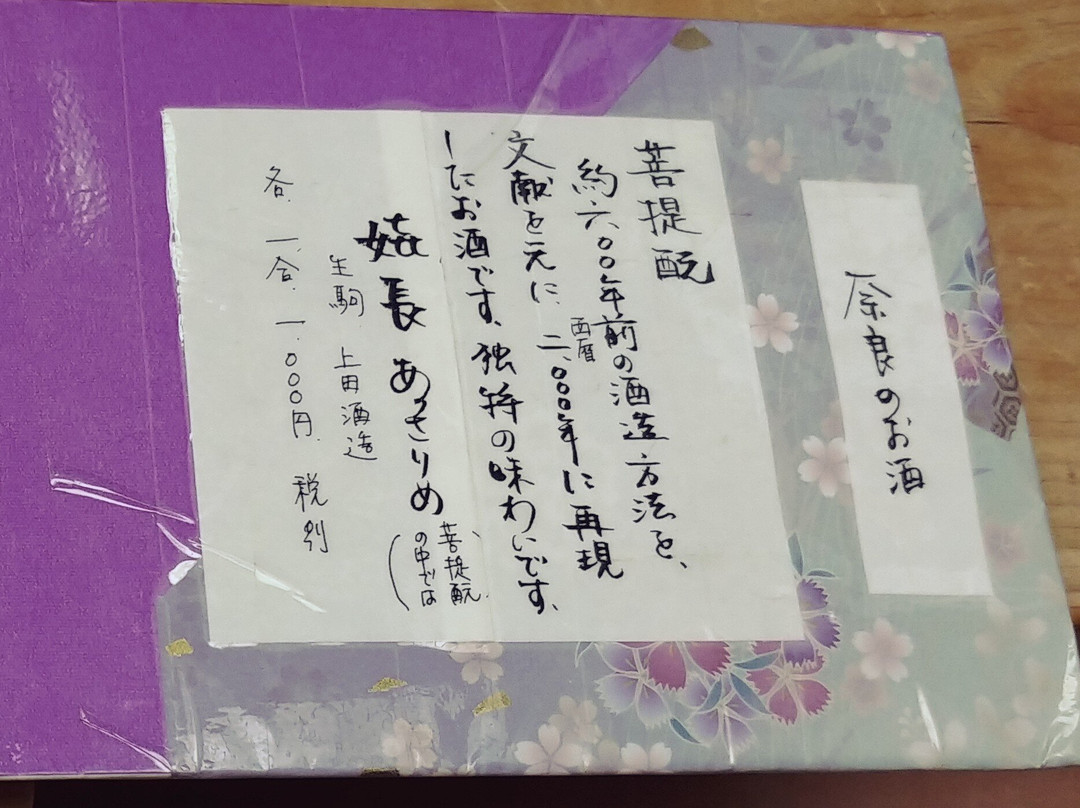 奈良のお酒
菩提酛
約六〇〇年前の酒造方法を、
文献を元に、西暦二、〇〇〇年に再現
したお酒です。独特の味わいです。
嬉長 あっさりめ(菩提酛の中では)
生駒 上田酒造
各、一、合、一、〇〇〇円、税別